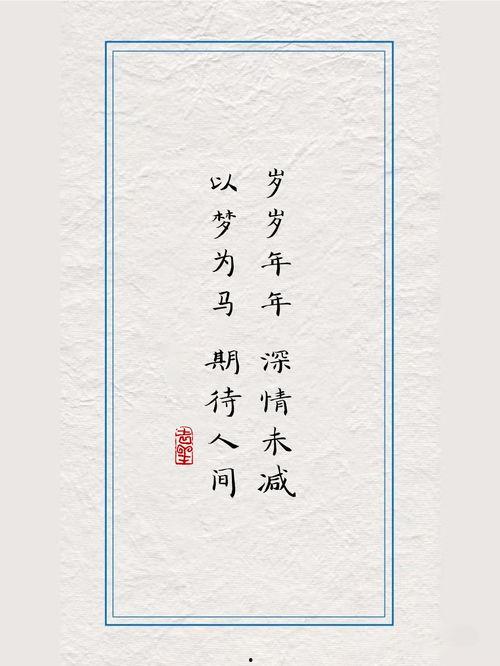 岁岁年年 深情未减
以梦为马 期待人间